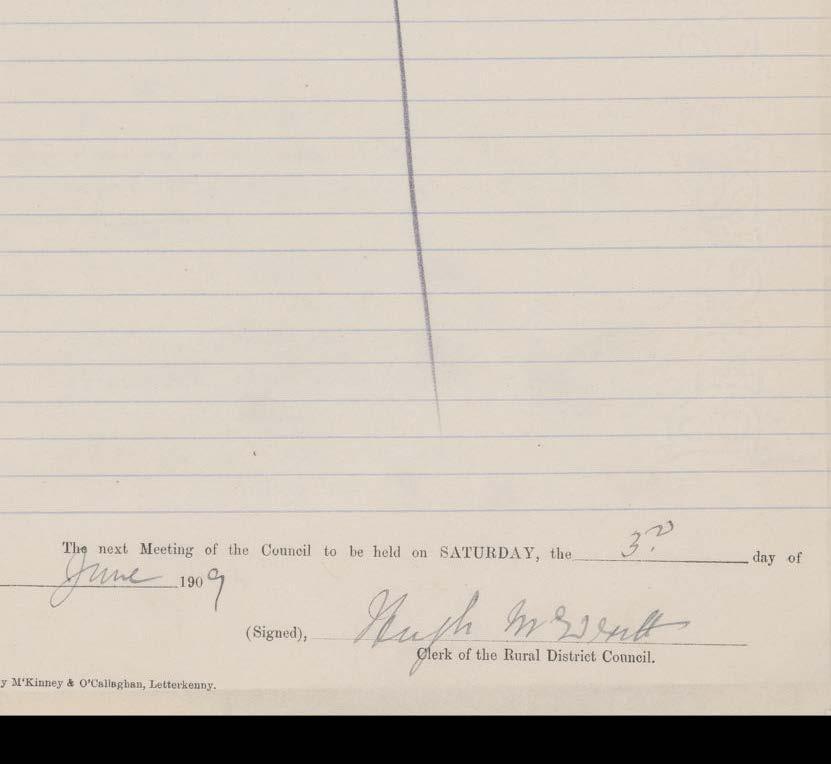 The next Meeting of the Council to be held on SATURDAY, the 3.d day of
June 1909
(Signed), Hugh
Clerk of the Rural District Council.
y M'Kinney & O'Callaghan, Letterkenny.